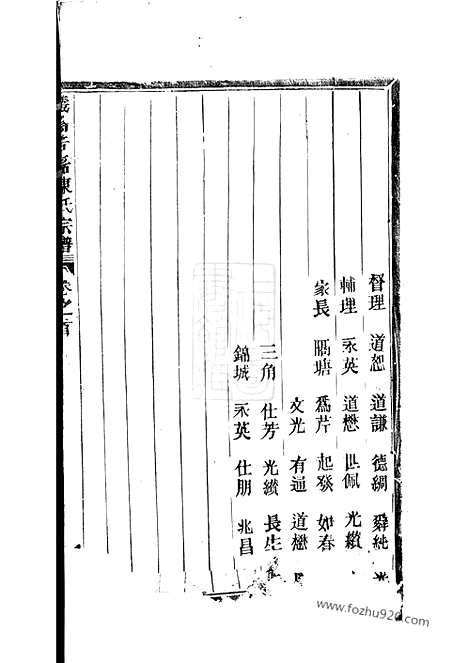 督理 道恕 道謙 德綢 舜純
輔理 永英 道懋 世佩 光纘
家長 隔塘 為芹 起發 如春
文光 有通 道懋
三角 仕芳 光纘 長生
錦城 永英 仕朋 兆昌
陳氏宗譜 卷之首
www.fozhu920.com